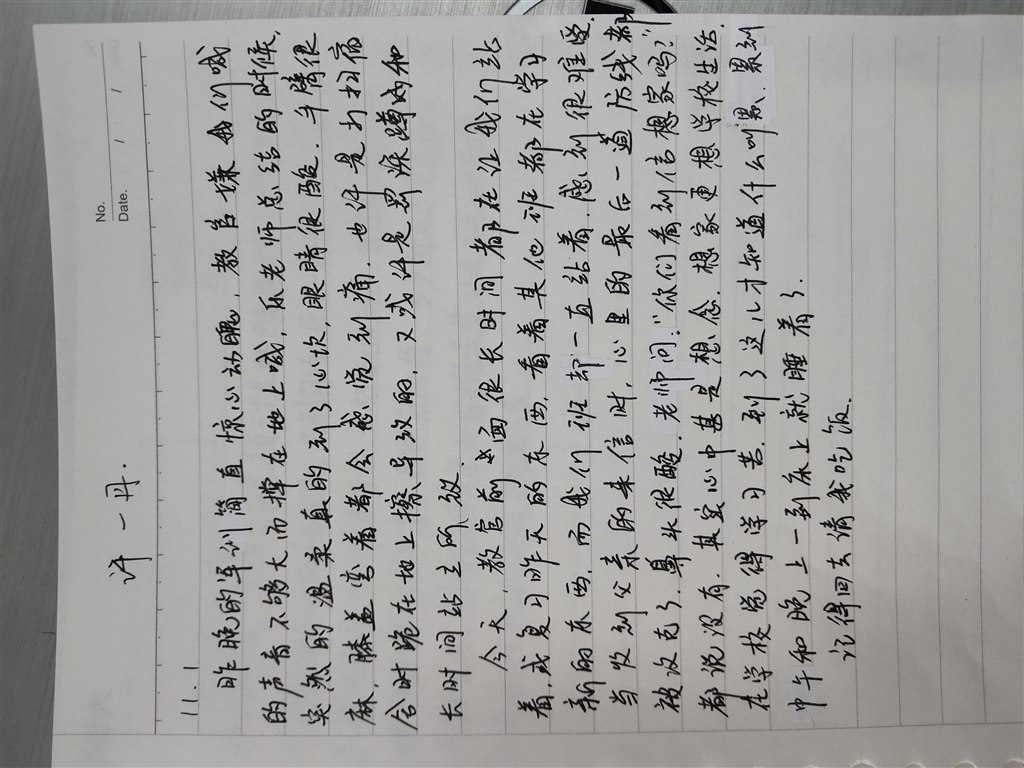 No.
Date.
许一丹.
11.1
昨晚的军训简直惊心动魄,教官嫌我们喊
的声音不够大而撑在地上喊,乐老师总结的时候,
突然的温柔真的到了心坎,眼睛很酸.手臂很
麻,膝盖弯着都会感觉到痛.也许是打扫宿
舍时跪在地上擦导致的,又或许是罚深蹲的和
长时间站立所致.
今天,教官前面很长时间都在让我们站
着,或复习昨天的东西,看着其他班都在学习
新的东西,而我们班却一直站着.感到很难受.
当发到父亲的来信时,心里的最后一道防线都
被攻克了.鼻头很酸.老师问:"你们看到信想家吗?"
都说没有.其实心中甚是想念.想家更想学校生活.
在学校觉得学习苦.到了这儿才知道什么叫累.累到
中午和晚上一到床上就睡着了.
记得回去请我吃饭.